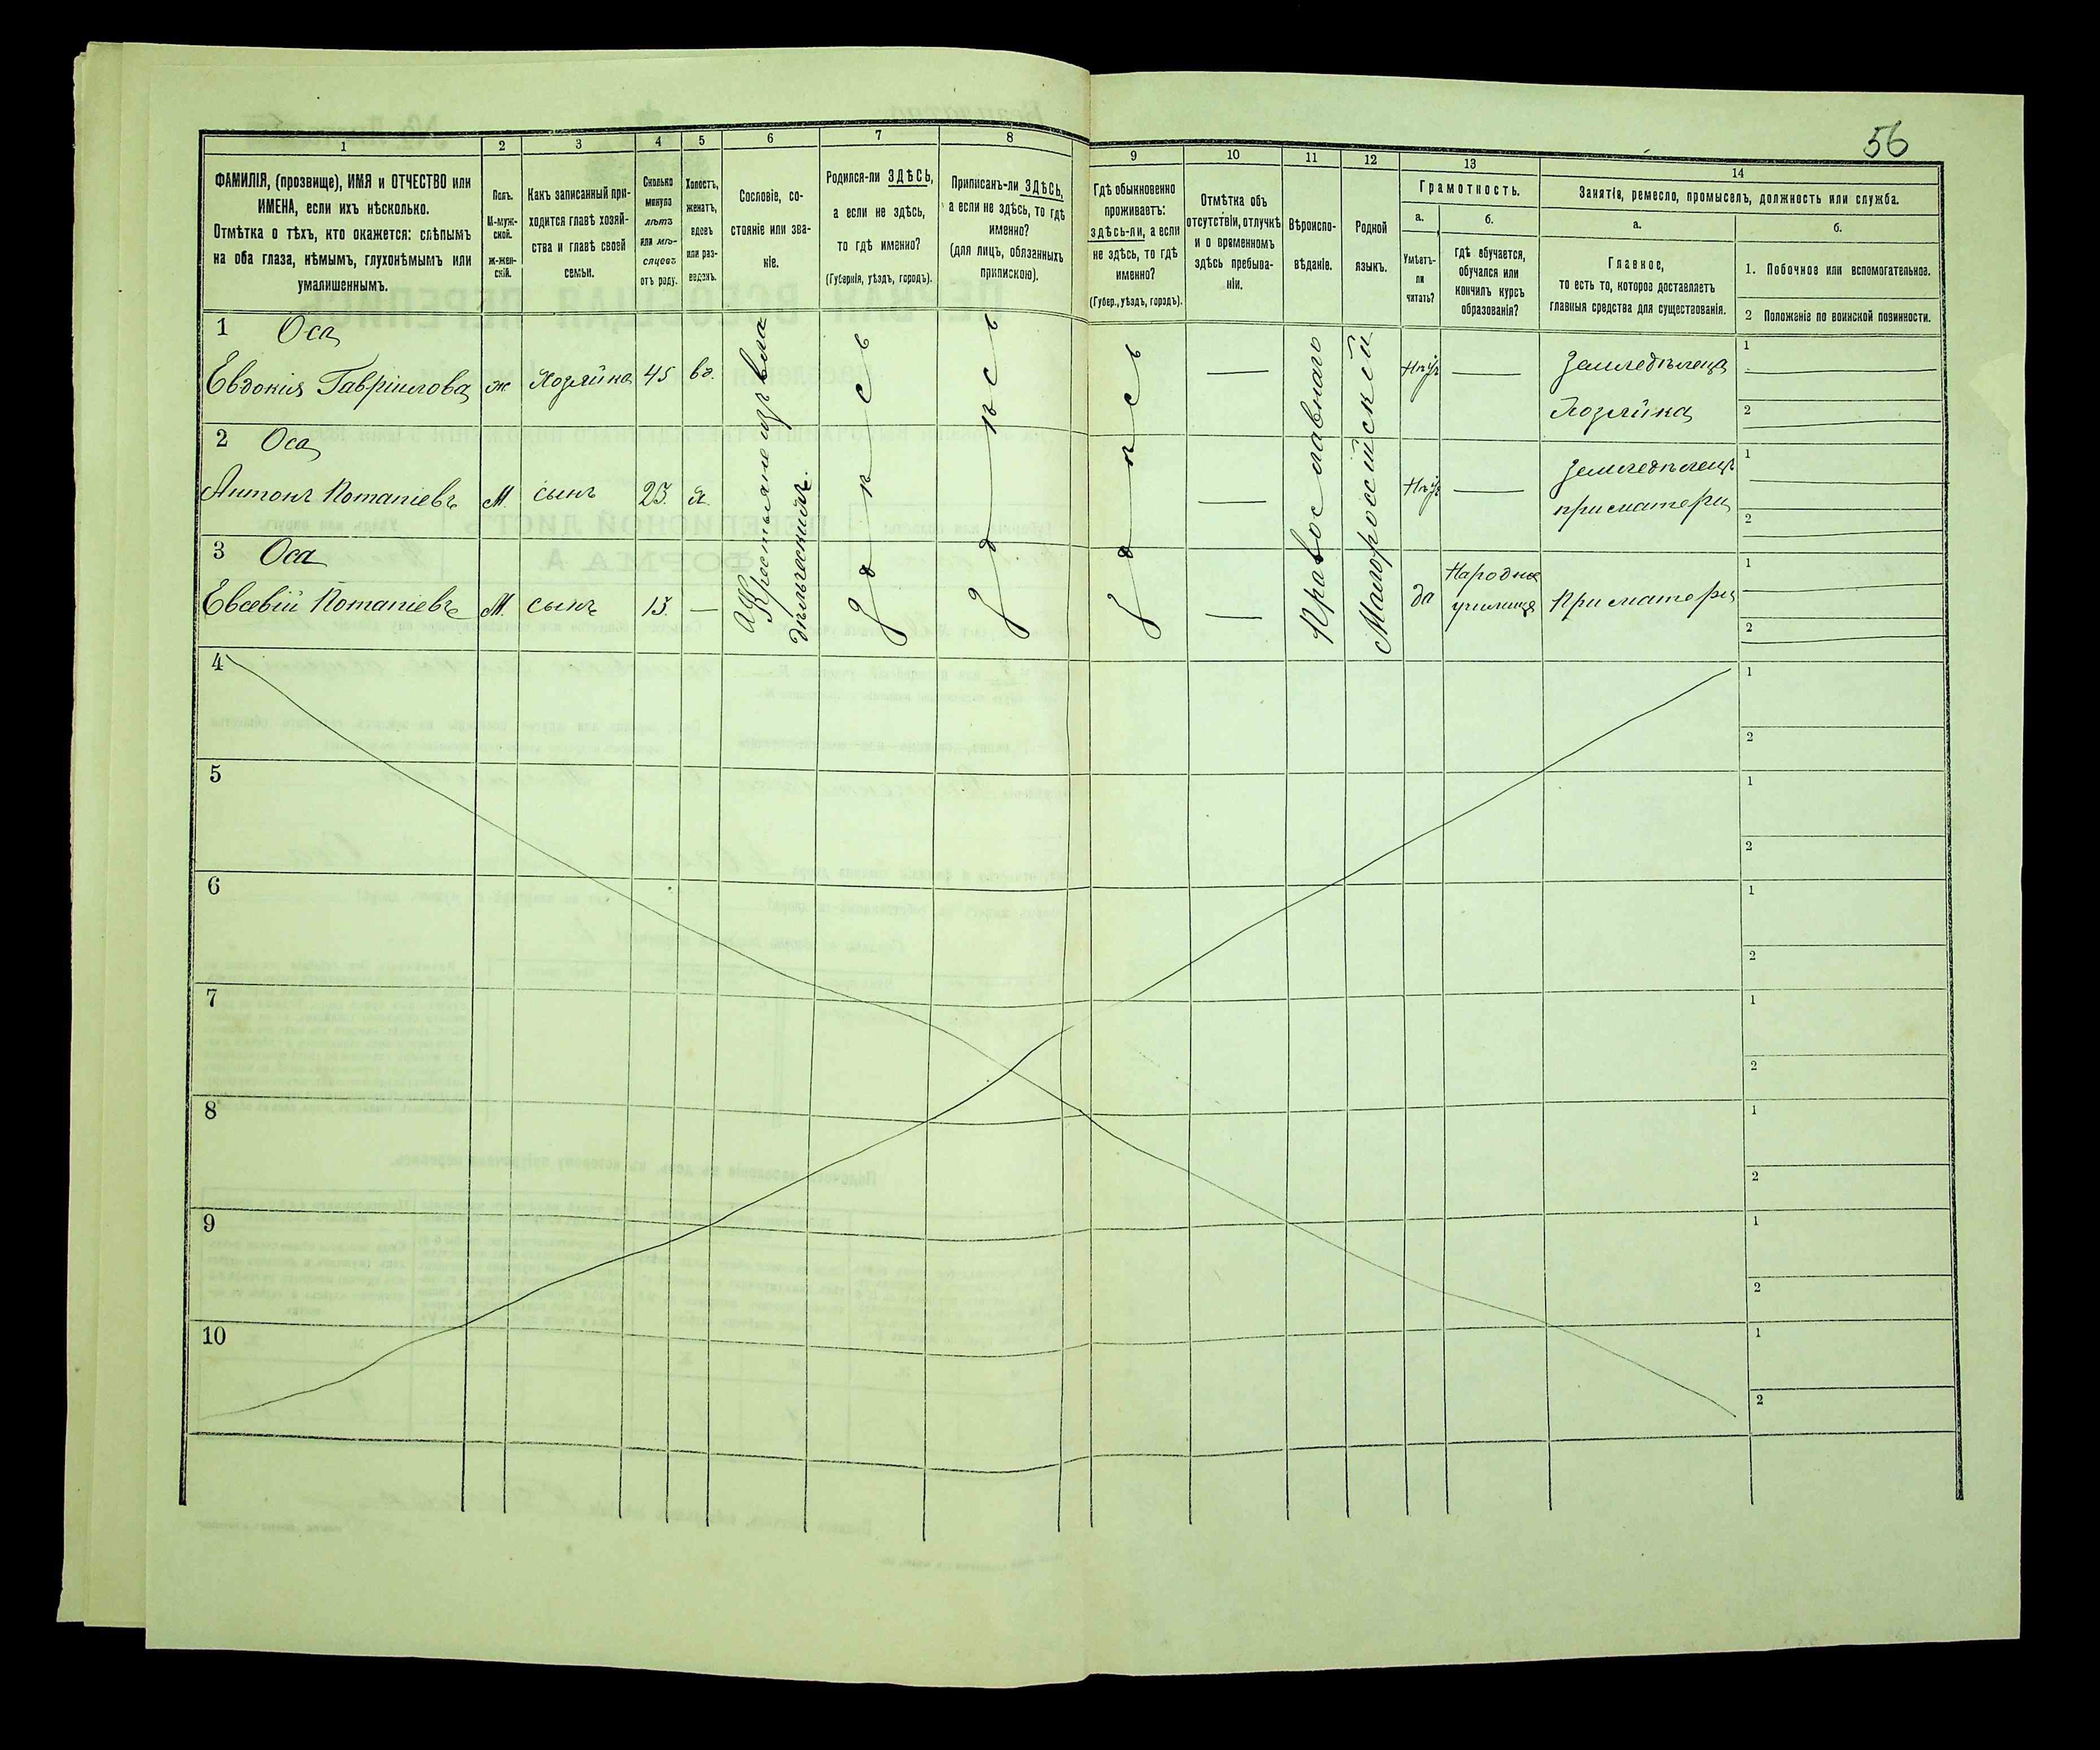 56
1
2
3
4
5
6
7
8
9
10
11
12
13
14
ФАМИЛІЯ, (прозвище), ИМЯ и ОТЧЕСТВО или
ИМЕНА, если ихъ нѣсколько.
Отмѣтка о тѣхъ, кто окажется: слѣпымъ
на оба глаза, нѣмымъ, глухонѣмымъ или
умалишеннымъ.
Полъ.
М-муж-
ской.
ж-жен-
скій.
Какъ записанный при-
ходится главѣ хозяй-
ства и главѣ своей
семьи.
Сколько
минуло
лѣтъ
или мѣ-
сяцевъ
отъ роду.
Холостъ,
женатъ,
вдовъ
или раз-
веденъ.
Сословіе, со-
стояніе или зва-
ніе.
Родился-ли ЗДѢСЬ,
а если не здѣсь,
то гдѣ именно?
(Губернія, уѣздъ, городъ).
Приписанъ-ли ЗДѢСЬ,
а если не здѣсь, то гдѣ
именно?
(для лицъ, обязанныхъ
припискою).
Гдѣ обыкновенно
проживаетъ:
здѣсь-ли, а если
не здѣсь, то гдѣ
именно?
(Губер., уѣздъ, городъ).
Отмѣтка объ
отсутствіи, отлучкѣ
и о временномъ
здѣсь пребыва-
ніи.
Вѣроиспо-
вѣданіе.
Родной
языкъ.
Грамотность.
а.
Умѣетъ-
ли
читать?
б.
Гдѣ обучается,
обучался или
кончилъ курсъ
образованія?
Занятія, ремесло, промыселъ, должность или служба.
а.
Главное,
то есть то, которое доставляетъ
главныя средства для существованія.
б.
1. Побочное или вспомогательное.
2 Положеніе по воинской повинности.
1 Оса
Евдокія Гавріилова ж Хозяйка 45 вд. — нѣтъ — Земледѣлецъ 1
Хозяйка 2
2 Оса
Антонъ Потапіевъ М. сынъ 23. х. — нѣтъ — Земледѣлецъ 1
при матери 2
3 Оса
Евсевій Потапіевъ М. сынъ 13. — — да Народное При матери 1
училище 2
Крестьяне изъ вла
дѣльческихъ.
Здѣсь
Здѣсь
Здѣсь
Православнаго
Малороссійскій
4 1
2
5 1
2
6 1
2
7 1
2
8 1
2
9 1
2
10 1
2